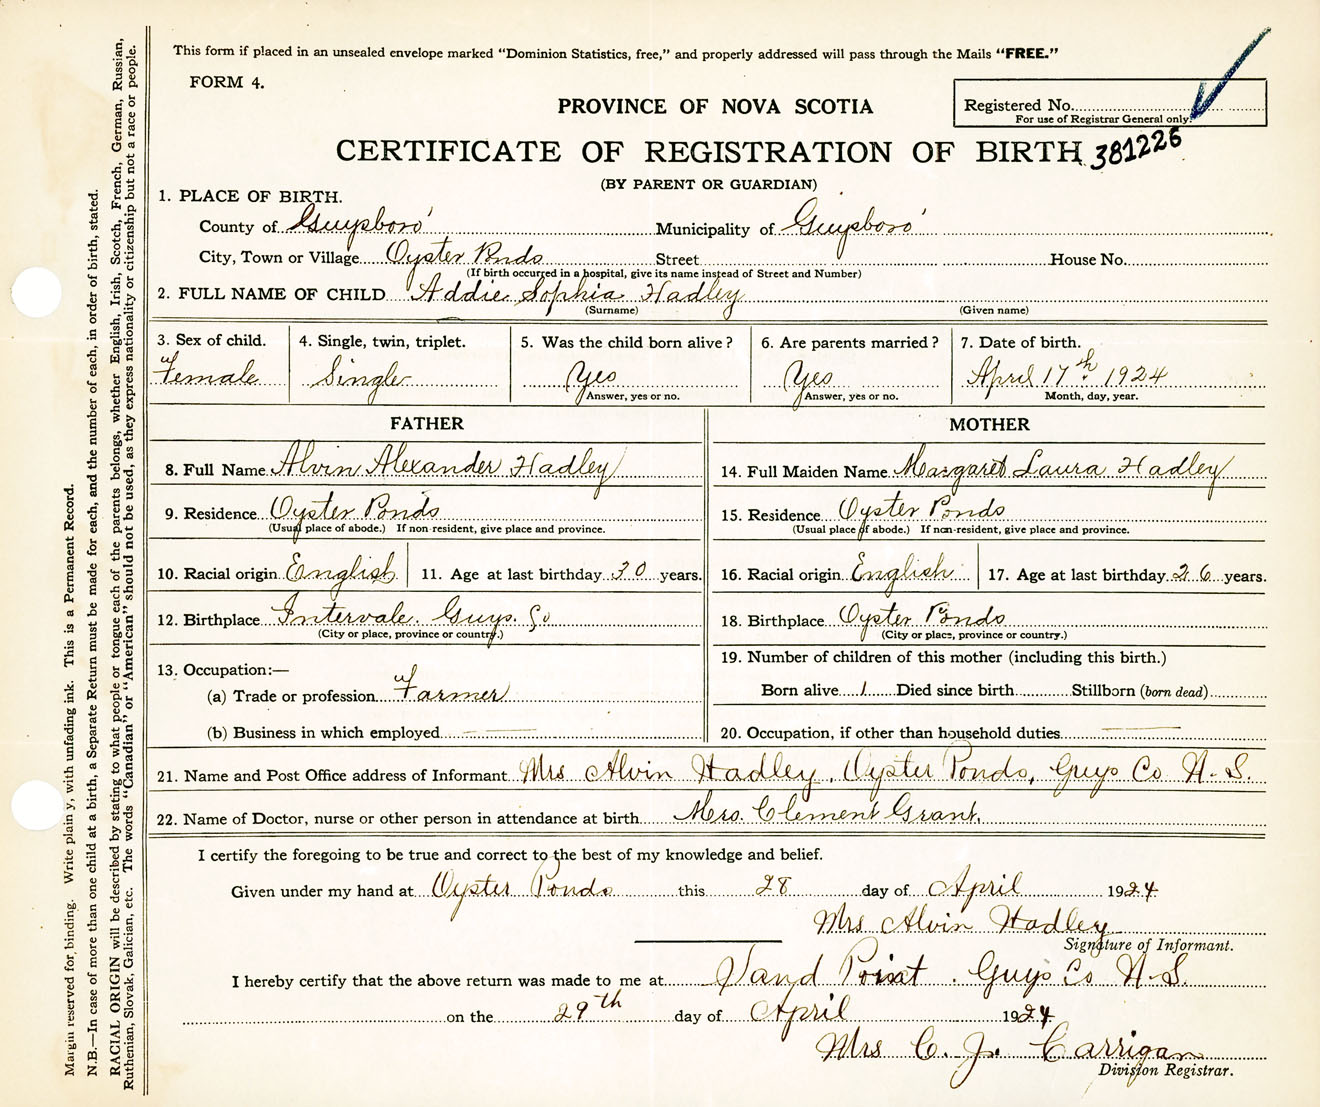 This form if placed in an unsealed envelope marked "Dominion Statistics, free," and properly addressed will pass through the Mails "FREE."
FORM 4.
PROVINCE OF NOVA SCOTIA
Registered No.
For use of Registrar General only.
CERTIFICATE OF REGISTRATION OF BIRTH 381226
(BY PARENT OR GUARDIAN)
1. PLACE OF BIRTH.
County of Guysboro' Municipality of Guysboro'
City, Town or Village Oyster Ponds Street House No.
(If birth occurred in a hospital, give its name instead of Street and Number)
2. FULL NAME OF CHILD Addie Sophia Hadley
(Surname) (Given name)
3. Sex of child. 4. Single, twin, triplet. 5. Was the child born alive? 6. Are parents married? 7. Date of birth.
Female Single Yes Yes April 17th 1924
Answer, yes or no. Answer, yes or no. Month, day, year.
FATHER MOTHER
8. Full Name Alvin Alexander Hadley 14. Full Maiden Name Margaret Laura Hadley
9. Residence Oyster Ponds 15. Residence Oyster Ponds
(Usual place of abode.) If non-resident, give place and province. (Usual place of abode.) If non-resident, give place and province.
10. Racial origin English 11. Age at last birthday 30 years. 16. Racial origin English 17. Age at last birthday 26 years.
12. Birthplace Intervale. Guys. Co 18. Birthplace Oyster Ponds
(City or place, province or country.) (City or place, province or country.)
13. Occupation:— 19. Number of children of this mother (including this birth.)
(a) Trade or profession Farmer Born alive 1 Died since birth Stillborn (born dead)
(b) Business in which employed 20. Occupation, if other than household duties
21. Name and Post Office address of Informant Mrs Alvin Hadley, Oyster Ponds, Guys Co N.S.
22. Name of Doctor, nurse or other person in attendance at birth Mrs. Clement Grant.
I certify the foregoing to be true and correct to the best of my knowledge and belief.
Given under my hand at Oyster Ponds this 28 day of April 1924
Mrs Alvin Hadley
Signature of Informant.
I hereby certify that the above return was made to me at Sand Point. Guys Co N.S.
on the 29th day of April 1924
Mrs C. J. Carrigan
Division Registrar.
Margin reserved for binding. Write plainly, with unfading ink. This is a Permanent Record.
N.B.—In case of more than one child at a birth, a Separate Return must be made for each, and the number of each, in order of birth, stated.
RACIAL ORIGIN will be described by stating to what people or tongue each of the parents belongs, whether English, Irish, Scotch, French, German, Russian,
Ruthenian, Slovak, Galician, etc. The words "Canadian" or "American" should not be used, as they express nationality or citizenship but not a race or people.